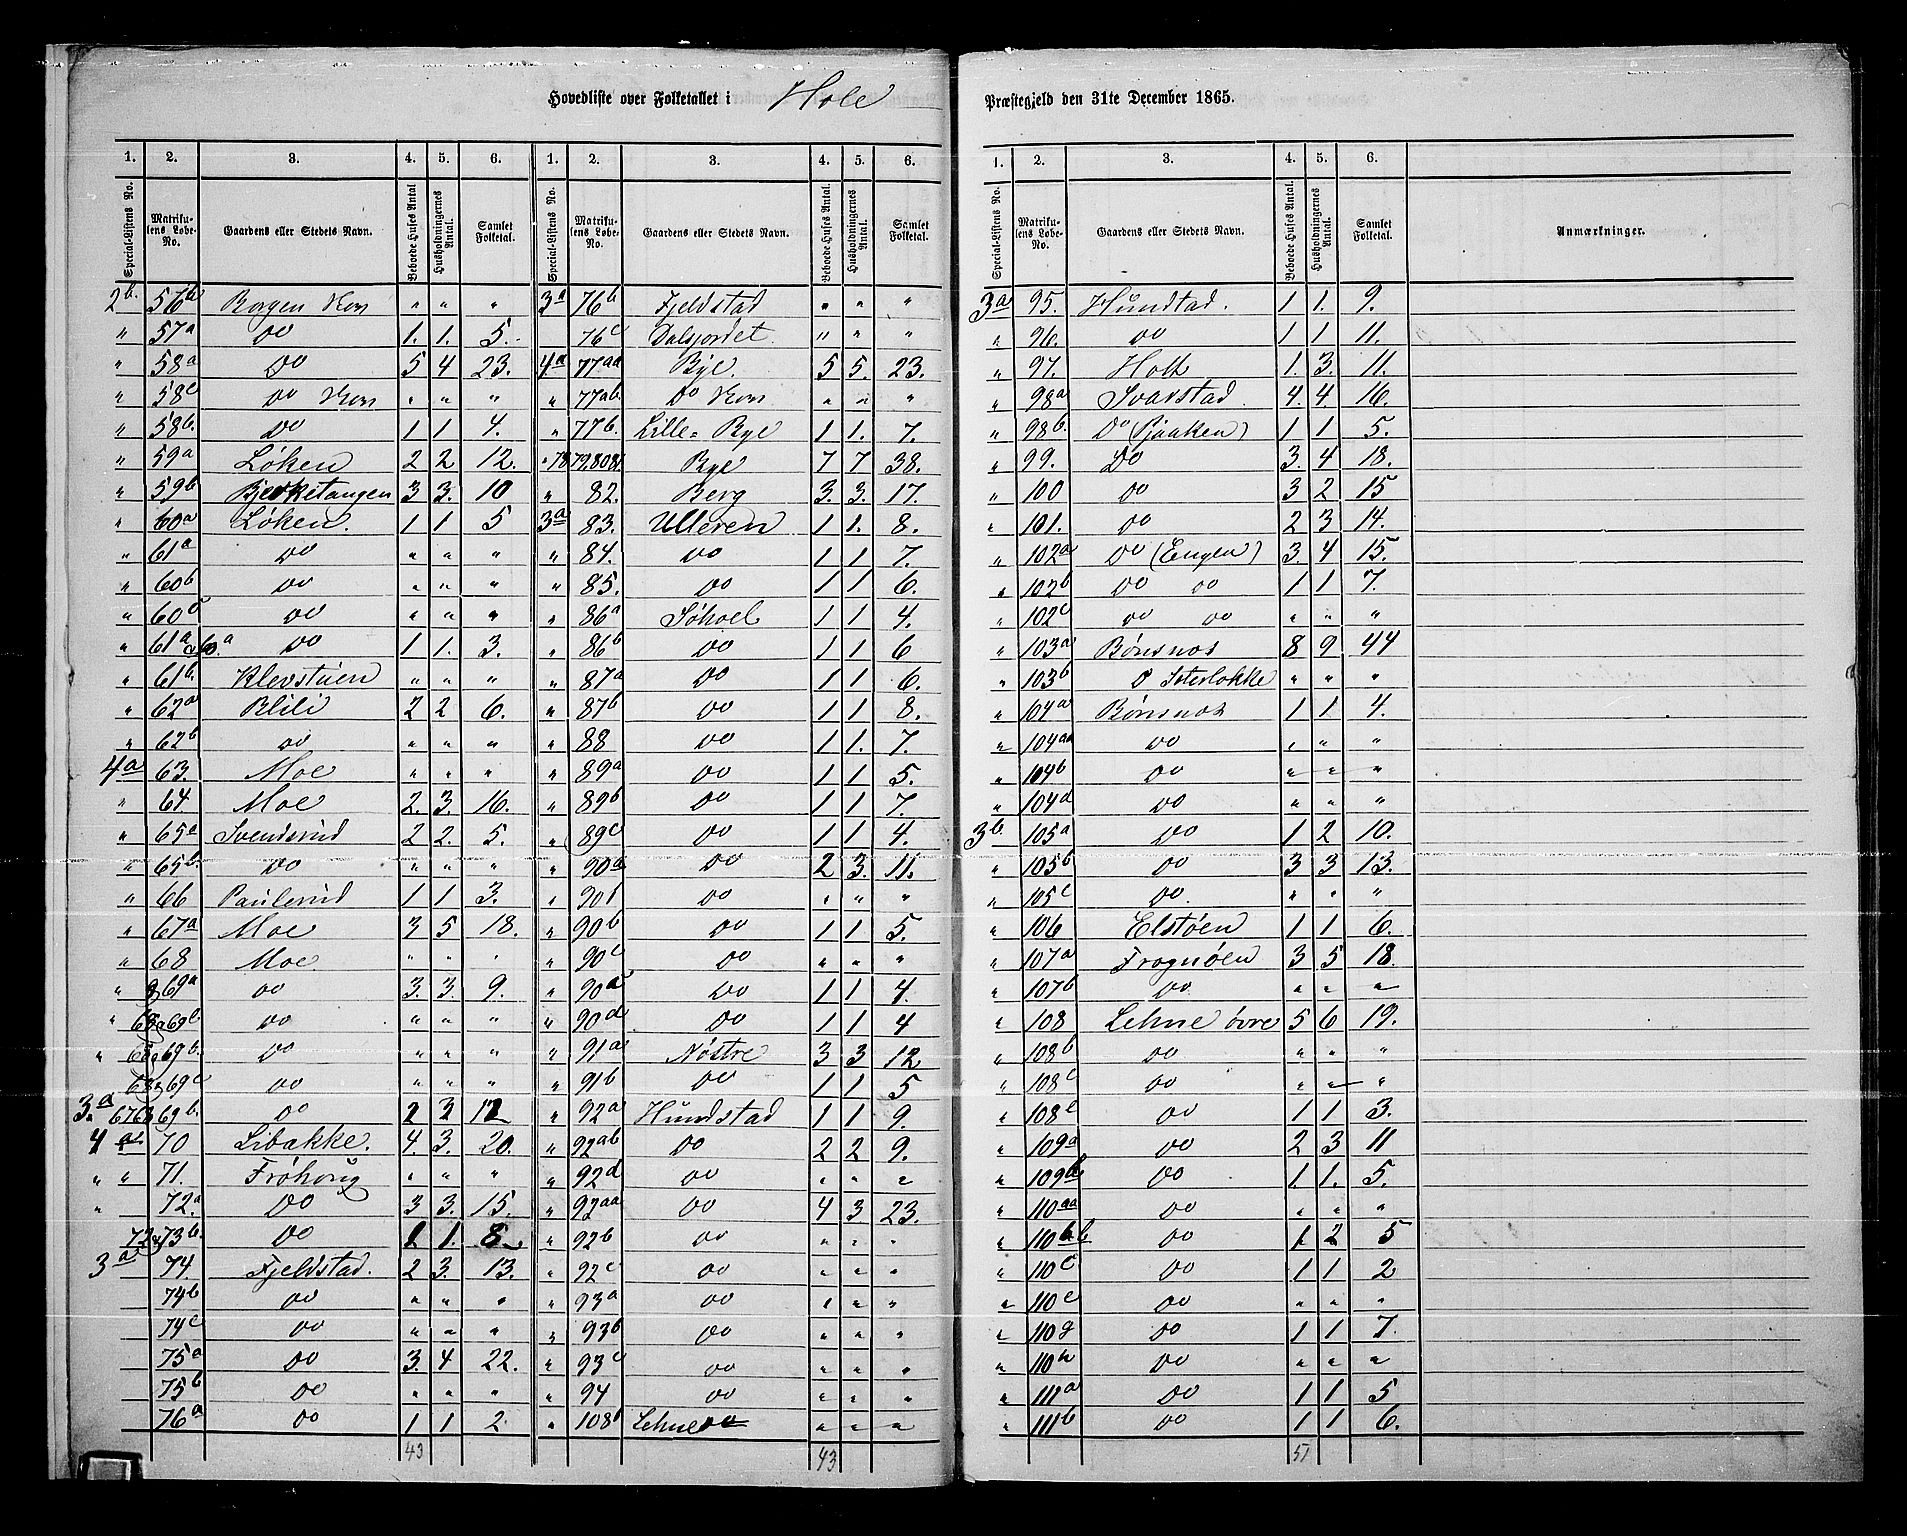 Hovedliste over Folketallet i Hole Præstegjeld den 31te December 1865.
1. 2. 3. 4. 5. 6. 1. 2. 3. 4. 5. 6.
Special-Listens No. Matrikulens Løbe-No. Gaardens eller Stedets Navn. Beboede Huses Antal Husholdningernes Antal. Samlet Folketal. Special-Listens No. Matrikulens Løbe-No. Gaardens eller Stedets Navn. Beboede Huses Antal. Husholdningernes Antal. Samlet Folketal.
2b. 56b Borgen Kon " " " 3a 76b Fjeldstad " " "
" 57a Do 1. 1. 5. 76c Dalsjordet " " "
" 58a Do 5 4 23. 4a 77aa Bye. 5 5. 23.
" 58c Do Kon " " " " 77ab. Do Kon " " "
" 58b. Do 1 1 4. " 77b. Lille=Bye 1 1. 7.
" 59a Løken 2 2 12. " 78 79.80 81. Bye 7 7 38.
" 59b Bjerketangen 3 3. 10 " 82. Berg 3. 3. 17.
" 60a Løken. 1 1 5 3a 83. Ulleren 1 1. 8.
" 61a Do " " " " 84. Do 1 1 7.
" 60b Do " " " " 85. Do 1 1 6.
" 60c Do " " " " 86a Søhoel 1 1 4.
" 61a Do 1 1. 3. " 86b Do 1 1 6
" 61b. Klevstuen " " " " 87a Do 1 1 6.
" 62a Blili 2 2 6. " 87b Do 1 1 8.
" 62b Do " " " " 88 Do 1 1. 7.
4a 63. Moe " " " " 89a Do 1 1 5.
" 64 Moe 2. 3. 16. " 89b Do 1 1 7.
" 65a Svendsrud 2 2. 5. " 89c Do 1 1 4.
" 65b. Do " " " " 90a Do 2 3. 11.
" 66 Paulsrud 1 1 3. " 90f Do " " "
" 67a Moe 3 5 18. " 90b Do 1 1 5.
" 68 Moe " " " " 90c Do " " "
" 69a Do 3. 3. 9. " 90a Do 1 1 4.
" 68 69b Do " " " " 90d Do 1 1 4
" 69b. Do " " " " 91a Nøstre 3 3 12
68 69c Do " " " " 91b Do 1 1 5
3a 67 68 69b. Do 2 3 12 " 92a Hundstad 1 1 9.
4a 70 Libakke. 4. 3. 20. " 92ab Do 2 2 9.
" " 71. Frøhoug " " " " 92d Do " " "
" 72.a Do 3 3. 15. " 92aa Do 4 3 23.
72 73b. Do 1 1. 8 " 92b Do " " "
3a 74. Fjeldstad. 2 3. 13. " 92c Do " " "
74b Do " " " " 93a Do " " "
74c Do " " " " 93b Do " " "
75a Do 3. 4 22. " 93c Do " " "
75b Do " " " " 94 Do " " "
76a Do 1 1 2. " 108f Lehne " " "
43 43
1. 2. 3. 4. 5. 6.
Special-Listens No. Matrikulens Løbe-No. Gaardens eller Stedets Navn. Beboede Huses Antal. Husholdningernes Antal. Samlet Folketal. Anmærkninger.
3a 95. Hundstad. 1 1. 9.
" 96. Do 1 1 11.
" 97. Holt 1. 3. 11.
" 98a Svarstad. 4. 4. 16.
" 98b. Do (Pjaaken) 1 1 5.
" 99. Do 3. 4 18.
" 100 Do 3 2 15
" 101. Do 2 3 14.
" 102a Do (Engen) 3. 4 15.
" 102b Do Do 1 1 7.
" 102c Do Do " " "
" 103a Bønsnæs 8 9 44
" 103b D " " "
" 104a Bønsnæs 1 1 4.
" 104aa Do " " "
" 104b Do " " "
" 104d Do " " "
3b. 105a Do 1 2 10.
" 105b Do 3 3 13.
" 105c Do. " " "
" 106 Elstøen 1 1 6.
" 107a Frognøen 3 5 18.
" 107b Do " " "
" 108 Lehne øvre 5 6 19.
" 108b Do " " "
" 108c Do " " "
" 108e Do 1 1 3.
" 109a Do 2 3 11
" 109b Do 1. 1. 5.
" 110aa Do " " "
" 110ab Do 1. 2 5
" 110c Do 1 1 2
" 110e Do " " "
" 110g Do 1 1 7.
" 110h Do " " "
" 111a Do 1 1 5
" 111b Do 1 1 6.
51